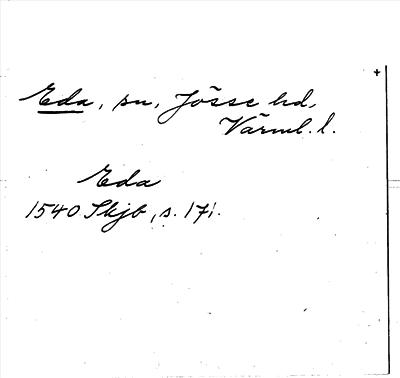 Eda, sn, Jösse hd,
Värml. l.
Eda
1540 Skjb, s. 171.